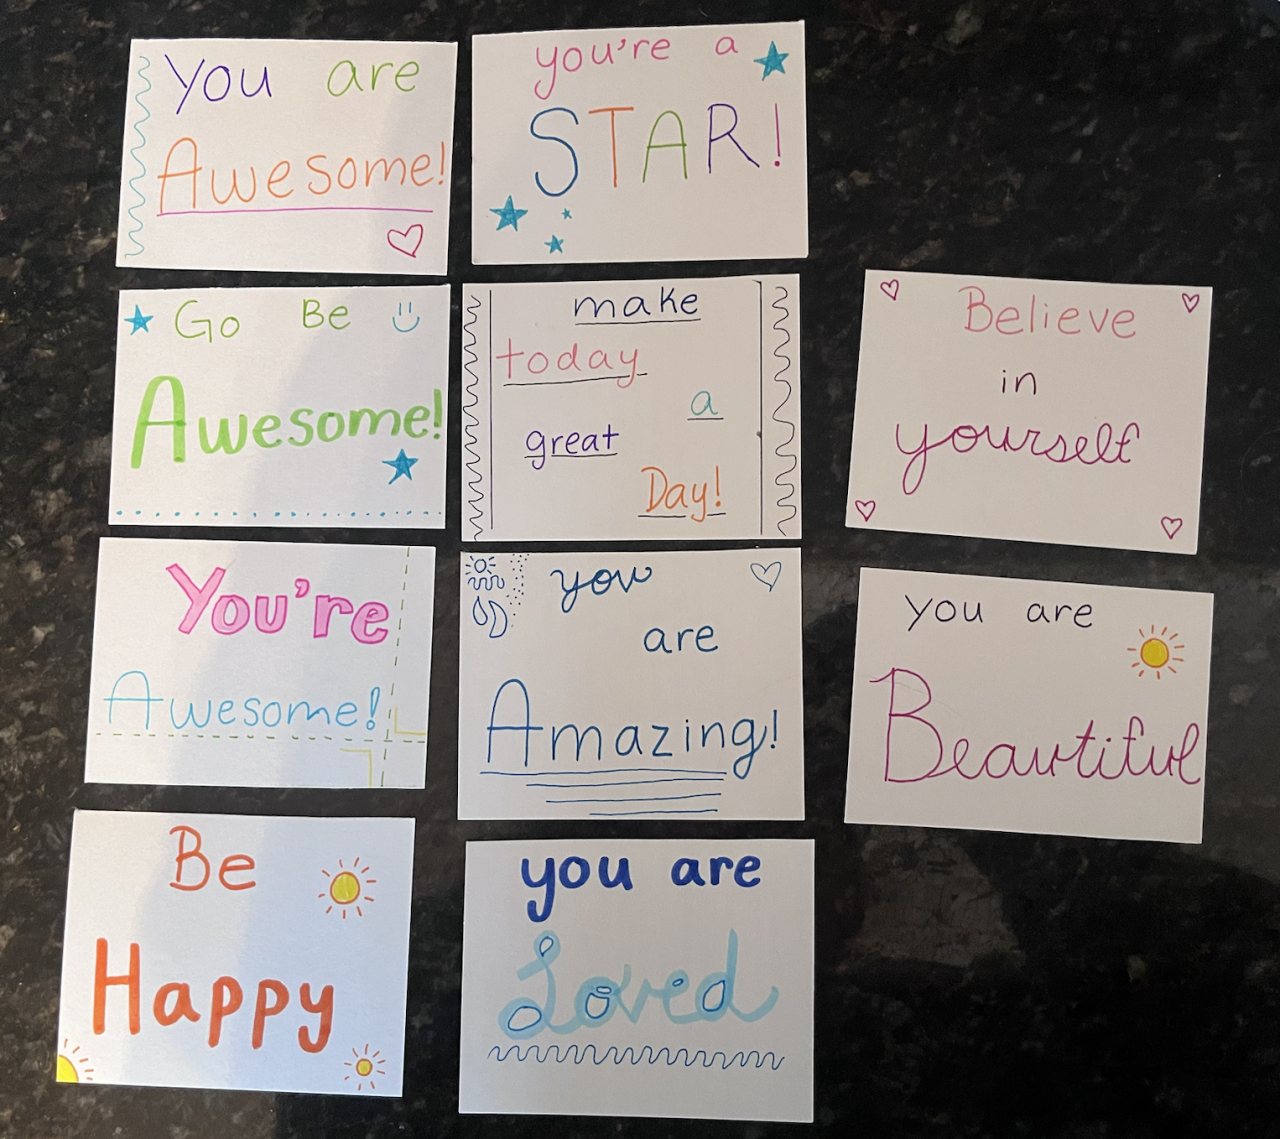 You are
Awesome!
you're a
STAR!
Go Be
Awesome!
make
today
a
great
Day!
Believe
in
yourself
You're
Awesome!
you
are
Amazing!
you are
Beautiful
Be
Happy
you are
Loved